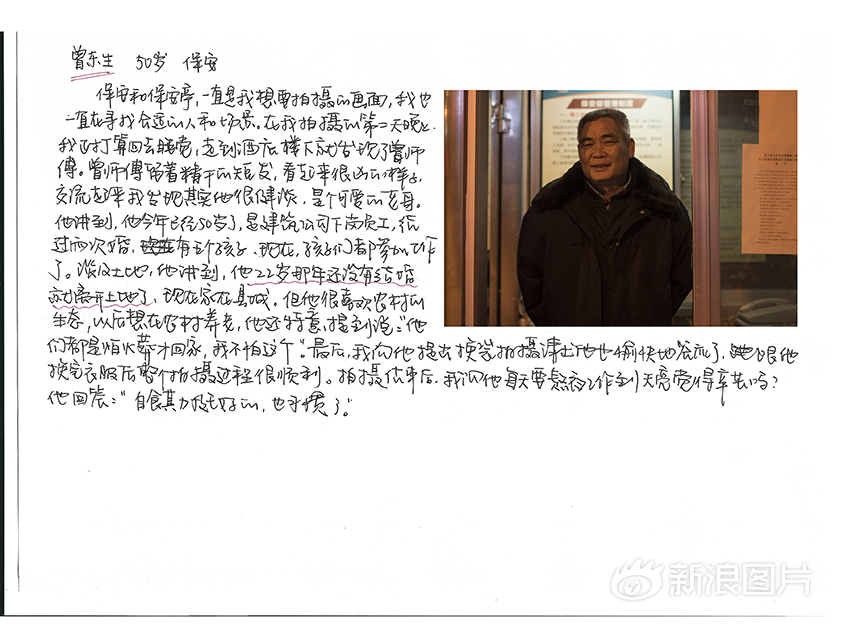 曾东生 50岁 保安
保安和保安亭,一直是我想要拍摄的画面,我也
一直在寻找合适的人和场景。在我拍摄的第一天晚上
我正打算回去睡觉,走到酒店楼下就发现了曾师
傅。曾师傅留着精干的短发,看起来很凶的样子,
交流起来我发现其实他很健谈,是个可爱的老哥。
他讲到,他今年已经50岁了,是建筑公司下岗员工,经
过两次婚,有三个孩子,现在,孩子们都参加工作
了。谈及土地,他讲到,他22岁那年还没有结婚
就离开土地了,现在家在县城。但他很喜欢农村的
生态,以后想在农村养老,他还特意提到说:"他
们都是怕火葬才回家,我不怕这个"。最后,我向他提出换装拍摄请求他也愉快地答应了,跟他
换完衣服后整个拍摄过程很顺利。拍摄结束后,我问他每天要熬夜工作到天亮觉得辛苦吗?
他回答:"自食其力挺好的,也习惯了。"
保安部管理制度
新浪图片